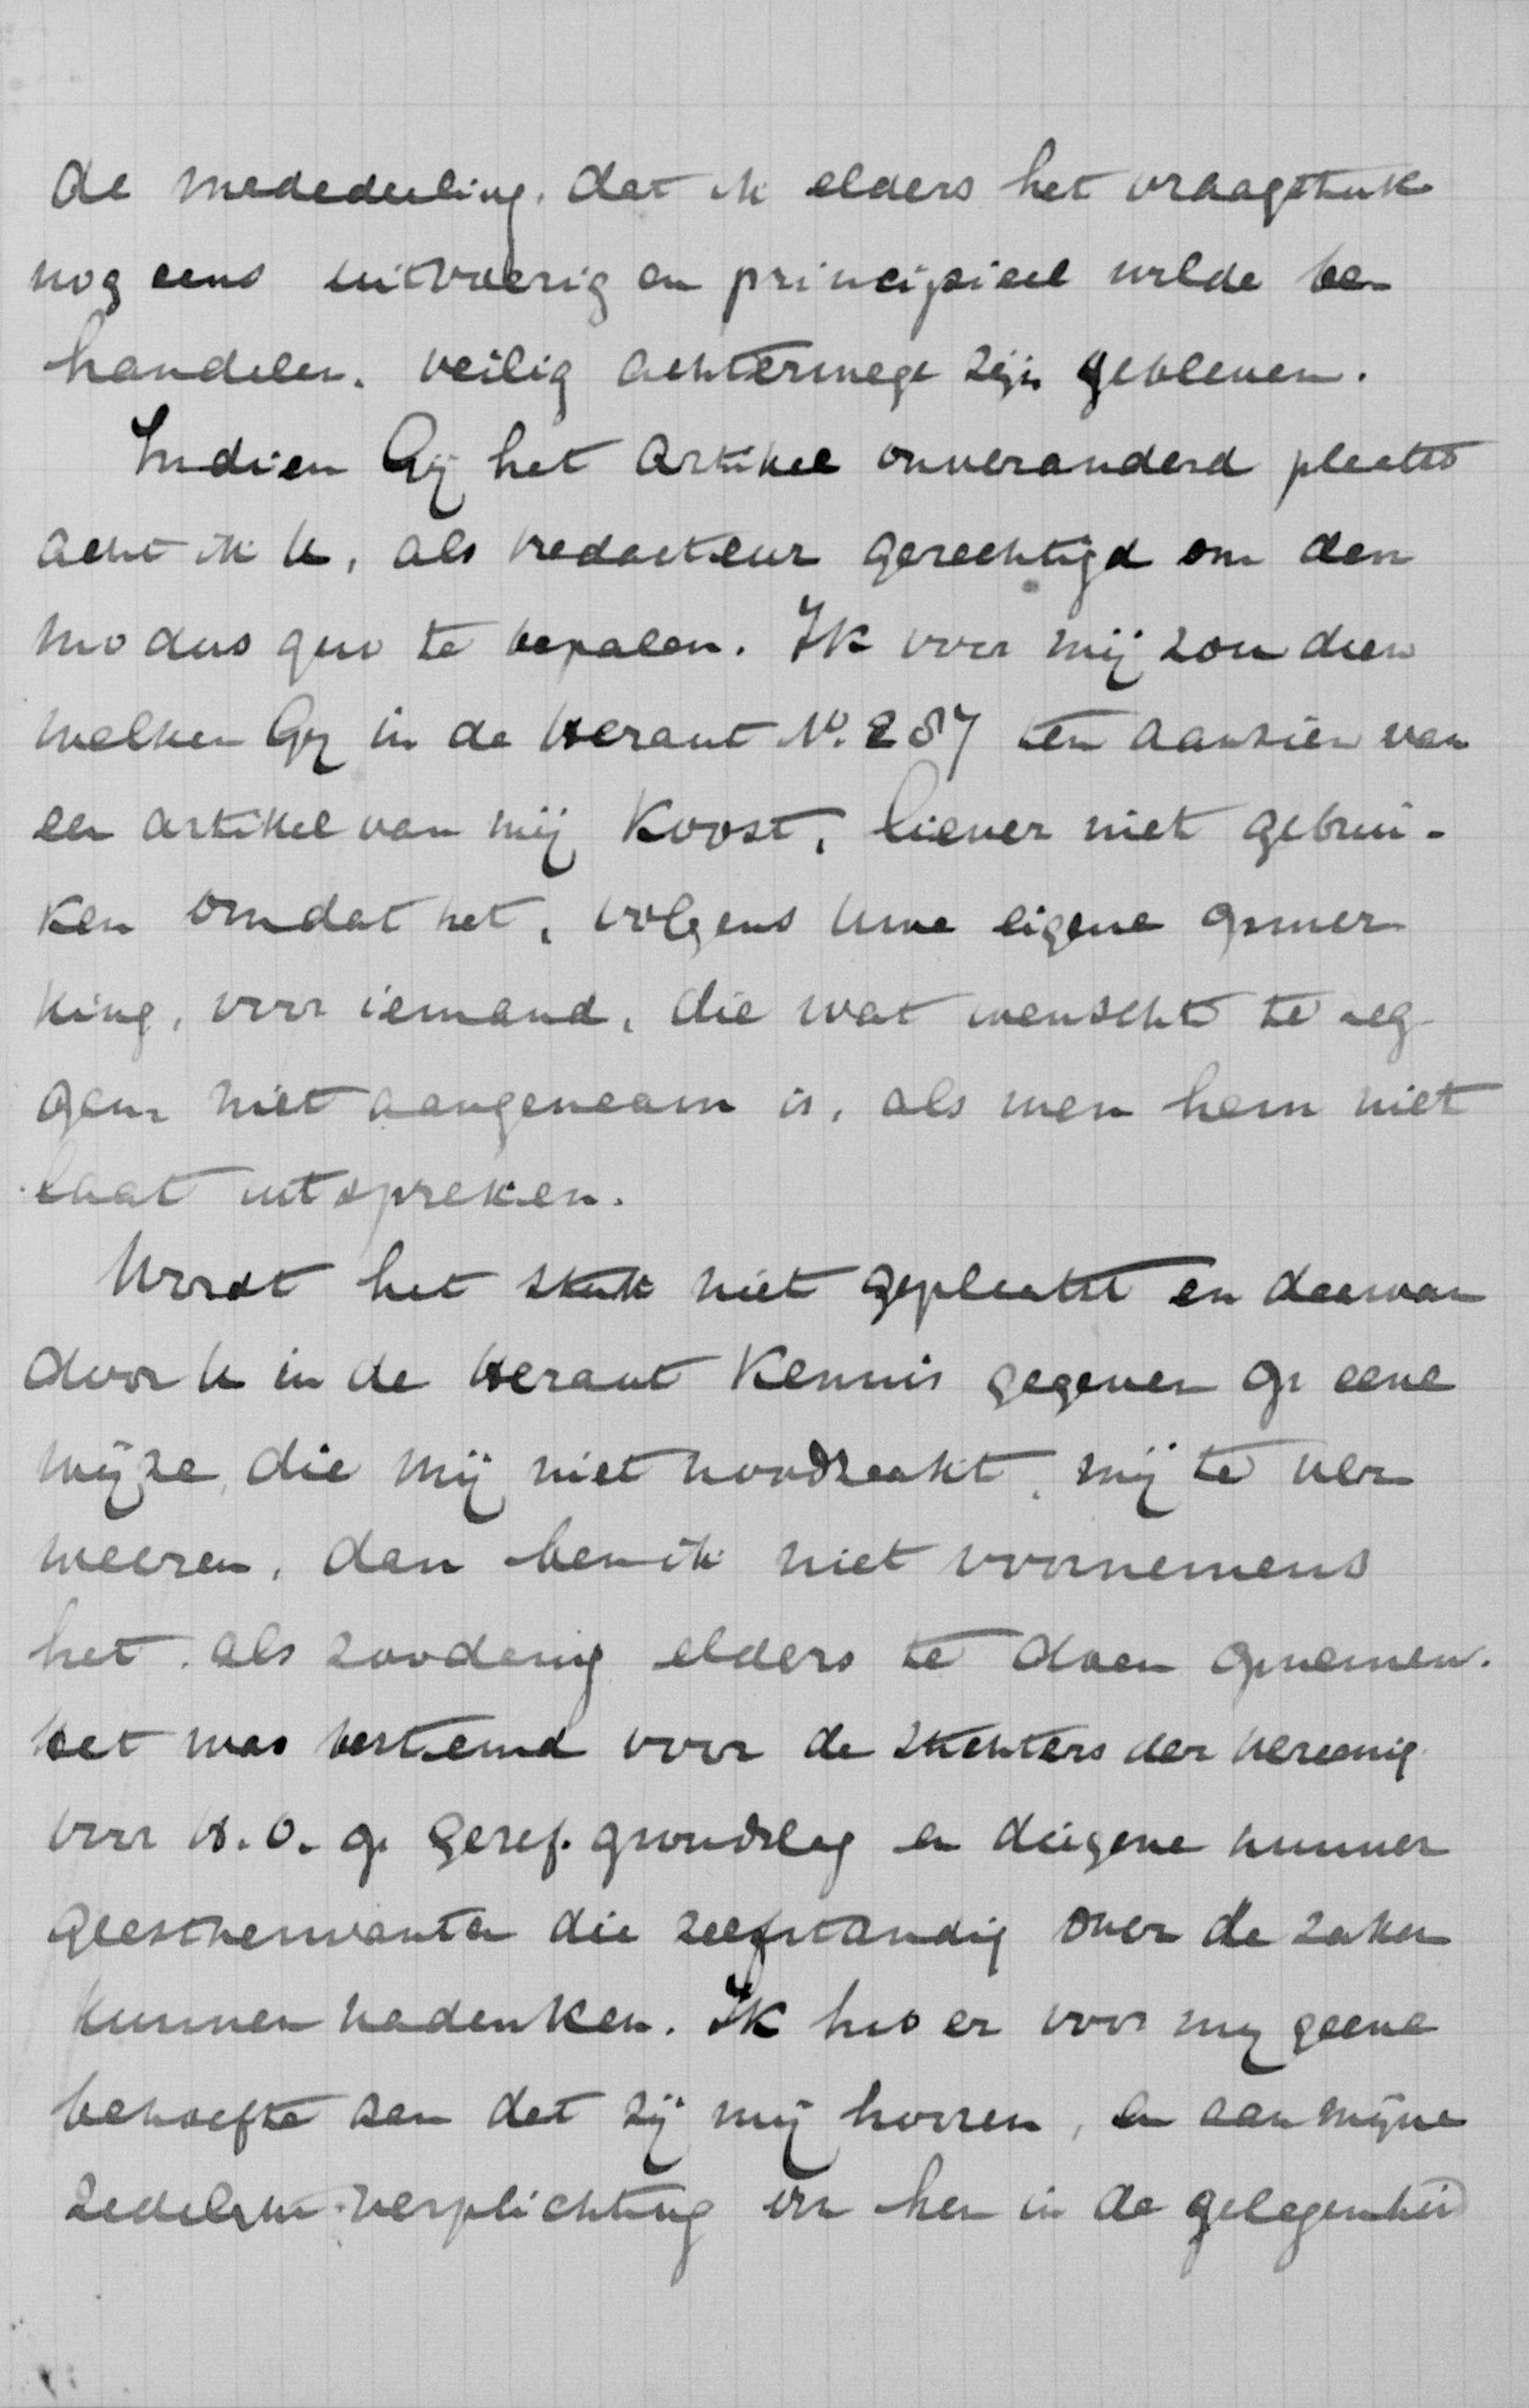 de mededeeling, dat ik elders het vraagstuk
nog eens uitvoerig en principieel wilde be-
handelen, veilig achterwege zijn gebleven.
Indien Gij het artikel onveranderd plaatst
acht ik U, als redacteur gerechtigd om den
modus quo te bepalen. Ik voor mij zou dien
welken Gij in de Heraut No. 287 ten aanzien van
een artikel van mij koost, liever niet gebrui-
ken omdat het, volgens Uwe eigene opmer
king, voor iemand, die wat wenscht te zeg-
gen niet aangenaam is, als men hem niet
laat uitspreken.
Wordt het stuk niet geplaatst en daarvan
door U in de Heraut kennis gegeven op eene
wijze, die mij niet noodzaakt, mij te ver
weeren, dan ben ik niet voornemens
het als zoodanig elders te doen opnemen.
Het was bestemd voor de stichters der Vereenig
voor H.O. op geref. grondslag en diegene hunner
geestverwanten die zelfstandig over de zaken
kunnen nadenken. Ik heb er voor mij geene
behoefte aan dat zij mij hooren, en aan mijne
zedelijke verplichting om hen in de gelegenheid